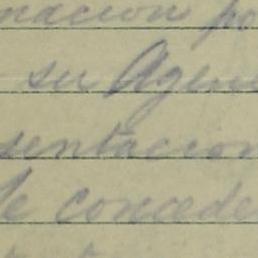 macion po
su Agen
sentacion
le concede